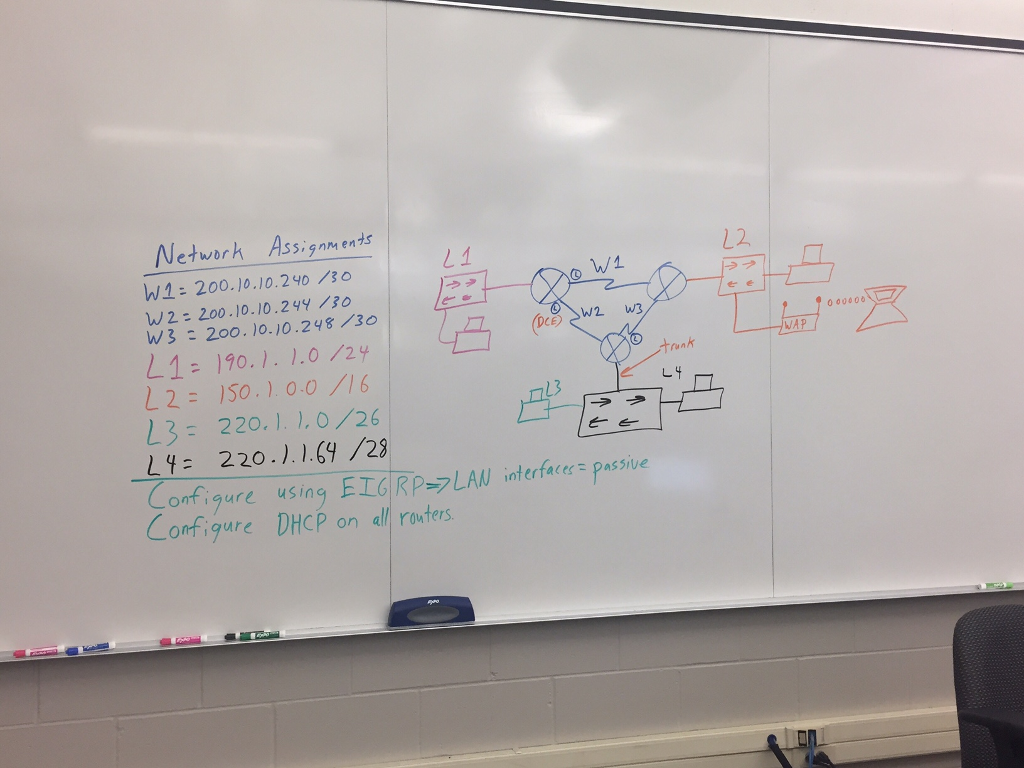 Network Assignments
W1 = 200.10.10.240 /30
W2 = 200.10.10.244 /30
W3 = 200.10.10.248 /30
L1 = 190.1.1.0 /24
L2 = 150.1.0.0 /16
L3 = 220.1.1.0 /26
L4 = 220.1.1.64 /28
Configure using EIGRP => LAN interfaces = passive
Configure DHCP on all routers.
L1
W1
L2
(DCE)
W2
W3
WAP
trunk
L3
L4
EXPO